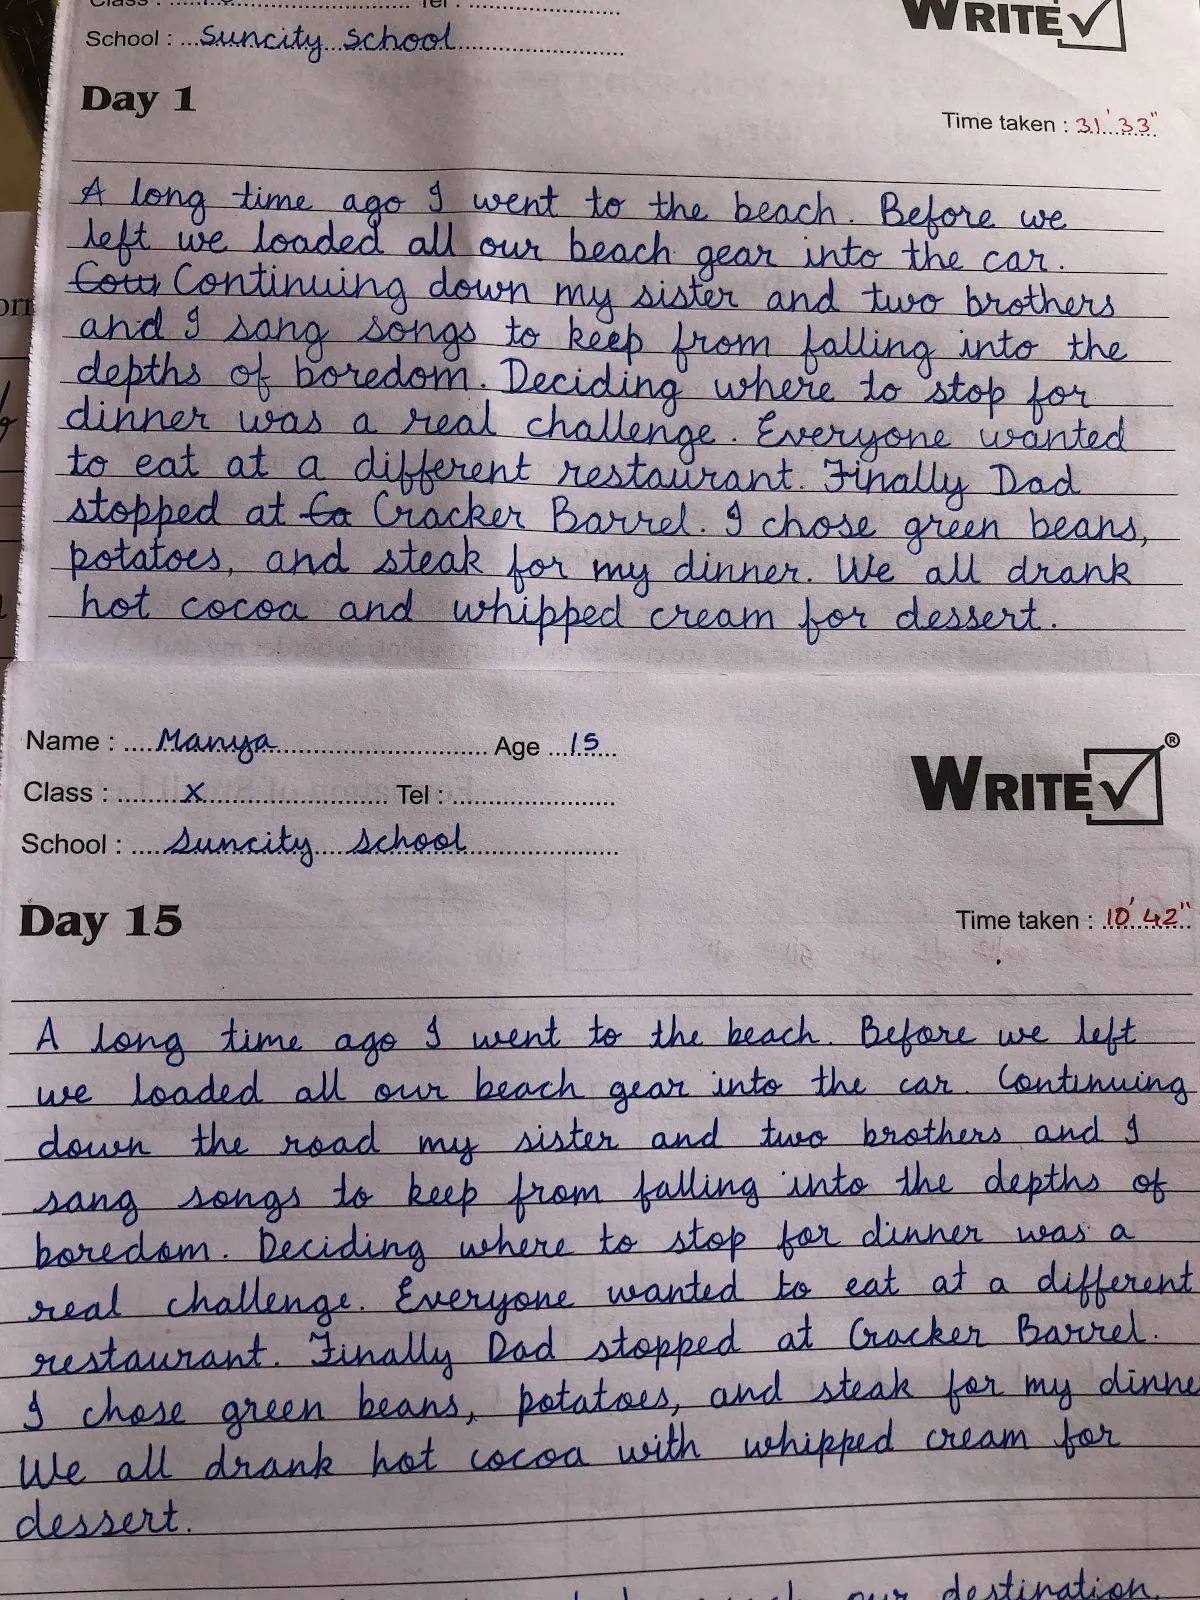 Class : Tel :
School : Suncity School
WRITE
Day 1
Time taken : 31' 33"
A long time ago I went to the beach. Before we
left we loaded all our beach gear into the car.
Continuing down my sister and two brothers
and I sang songs to keep from falling into the
depths of boredom. Deciding where to stop for
dinner was a real challenge. Everyone wanted
to eat at a different restaurant. Finally Dad
stopped at Ca Cracker Barrel. I chose green beans,
potatoes, and steak for my dinner. We all drank
hot cocoa and whipped cream for dessert.
Name : Manya Age 15
WRITE ®
Class : X Tel :
School : Suncity School
Day 15
Time taken : 10' 42"
A long time ago I went to the beach. Before we left
we loaded all our beach gear into the car. Continuing
down the road my sister and two brothers and I
sang songs to keep from falling into the depths of
boredom. Deciding where to stop for dinner was a
real challenge. Everyone wanted to eat at a different
restaurant. Finally Dad stopped at Cracker Barrel.
I chose green beans, potatoes, and steak for my dinne
We all drank hot cocoa with whipped cream for
dessert.
our destination.